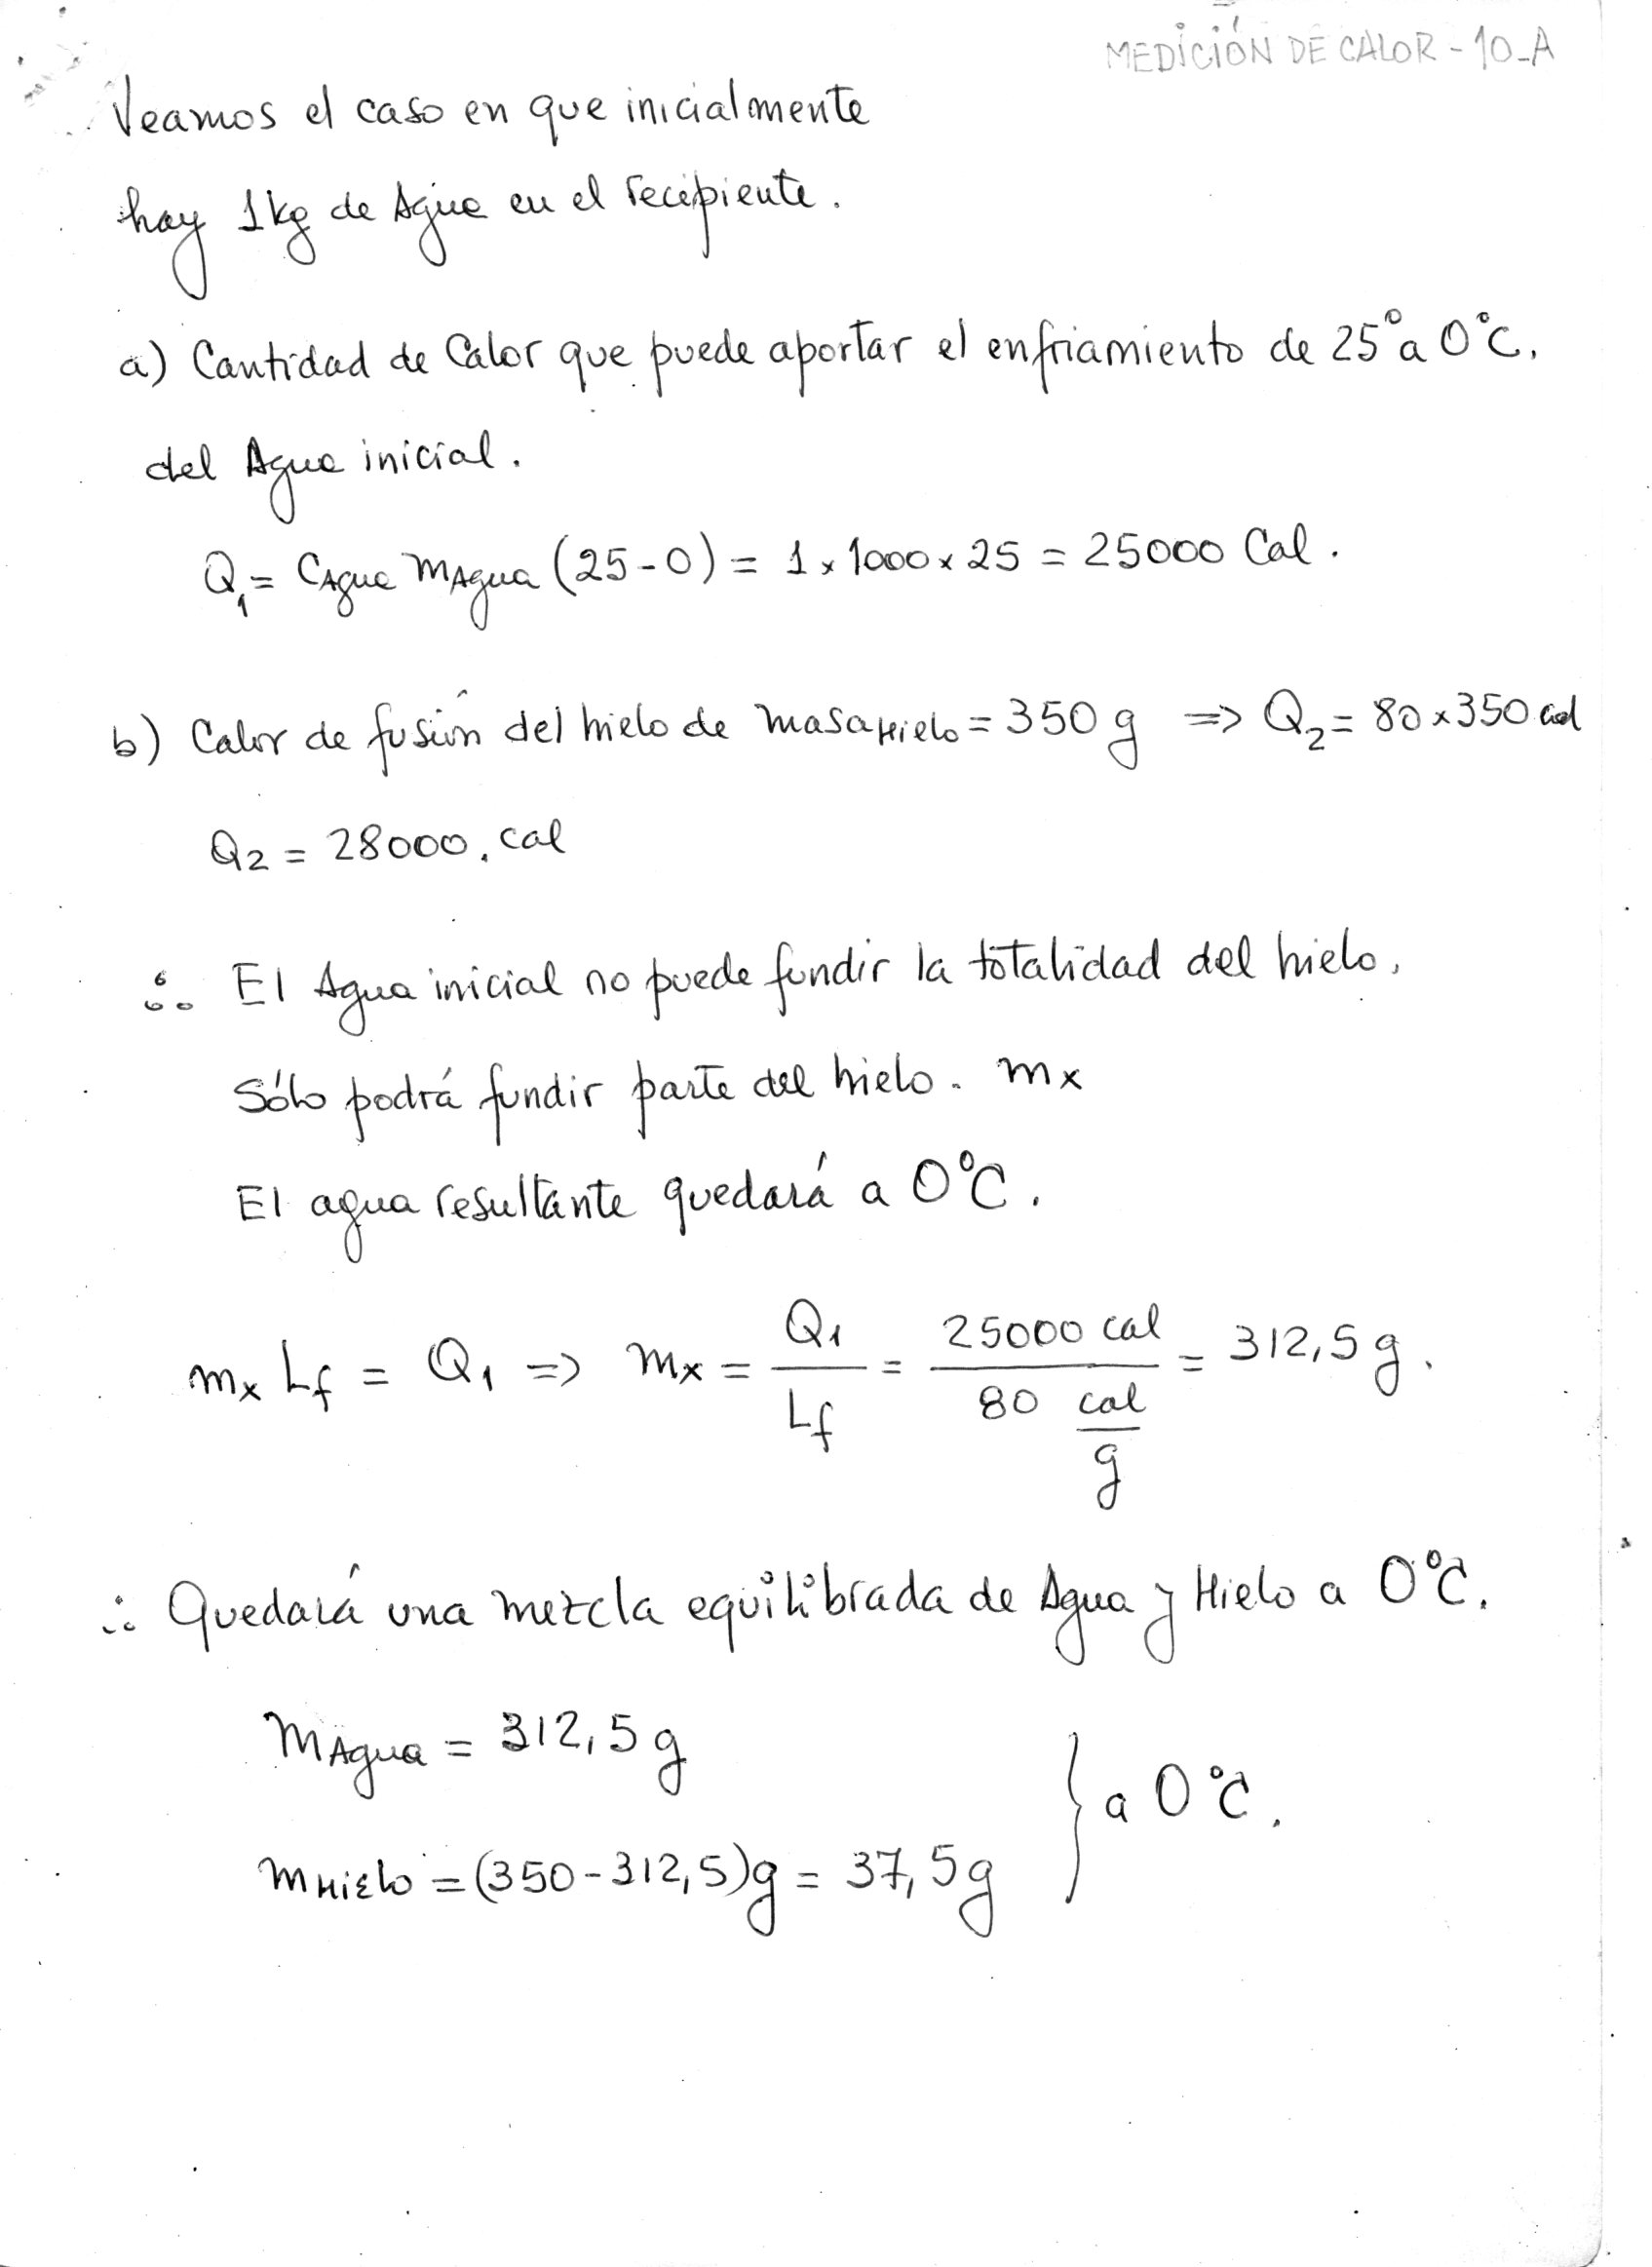 MEDICIÓN DE CALOR - 10_A
Veamos el caso en que inicialmente
hay 1kg de Agua en el recipiente.
a) Cantidad de Calor que puede aportar el enfriamiento de 25° a 0°C.
del Agua inicial.
Q₁ = CAgua MAgua (25-0) = 1 x 1000 x 25 = 25000 Cal.
b) Calor de fusión del hielo de masa Hielo = 350 g => Q₂ = 80 x 350 cal
Q₂ = 28000. cal
∴ El Agua inicial no puede fundir la totalidad del hielo.
Sólo podrá fundir parte del hielo. mx
El agua resultante quedará a 0°C.
mx Lf = Q₁ => mx = Q₁ / Lf = 25000 cal / 80 cal/g = 312,5 g.
∴ Quedará una mezcla equilibrada de Agua y Hielo a 0°C.
MAgua = 312,5 g
mHielo = (350-312,5)g = 37,5g } a 0°C.